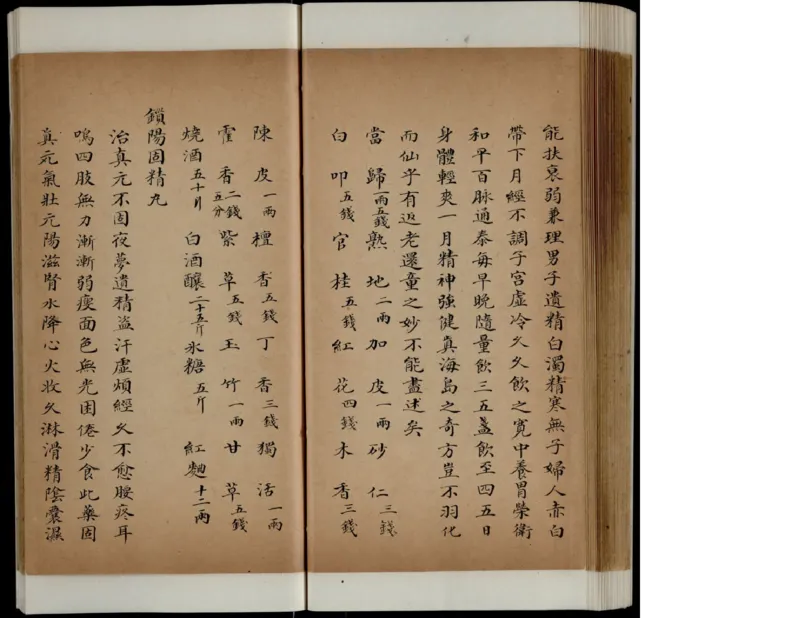 能扶衰弱兼理男子遺精白濁精寒無子婦人赤白
帶下月經不調子宮虛冷久久飲之寬中養胃榮衛
和平百脉通泰每早晚隨量飲三五盞飲至四五日
身體輕爽一月精神強健眞海島之奇方豈不羽化
而仙乎有返老還童之妙不能盡述矣
當歸一兩五錢熟地二兩加皮一兩砂仁三錢
白叩五錢官桂五錢紅花四錢木香三錢
陳皮一兩檀香五錢丁香三錢獨活一兩
霍香二錢五分紫草五錢玉竹一兩甘草五錢
燒酒五十斤白酒釀二十五斤氷糖五斤紅麯十二兩
鎖陽固精丸
治真元不固夜夢遺精盜汗虛煩經久不愈腰疼耳
鳴四肢無力漸漸弱瘦面色無光困倦少食此藥固
真元氣壯元陽滋腎水降心火收久淋滑精陰囊濕